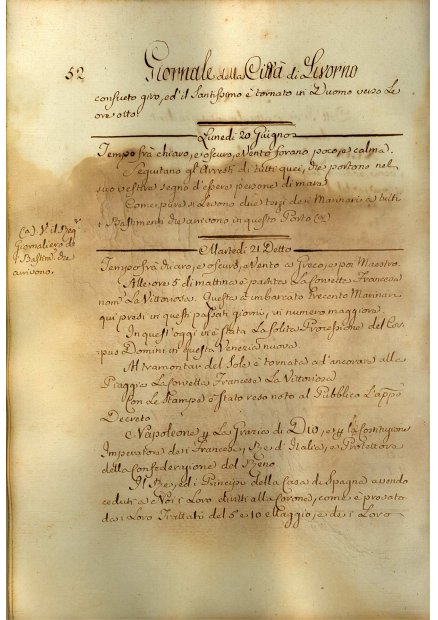 52 Giornale della Città di Livorno
consueto giro, ed il Santissimo è tornato in Duomo verso Le
ore otto.
Lunedì 20 Giugno
Tempo frà chiaro, e oscuro, e Vento forano poco, e calma.
Seguitano gli Arresti di tutti quei, che portono nel
suo vestire segno d'essere persone di mare.
Come pure si Levono due terzi de i Marinari a tutti
i Bastimenti che arrivono in questo Porto (a)
(a) V. il Reg.
Giornaliero de
Bastim. che
arrivono.
Martedì 21 Detto
Tempo frà chiaro, e oscuro, e Vento a Greco, e poi Maestro.
Alle ore 5 di mattina è partita La Corvetta Francese
nom. La Vittoriosa. Questa à imbarcato trecento Marinari
qui presi in questi passati giorni, in numero maggiore.
In quest'oggi vi è stata La Solita Processione del Cor-
pus Domini in questa Venezia nuova.
Al tramontar del Sole è tornata ad'ancorare alla
Piaggia La Corvetta Francese La Vittoriosa
Con Le Stampe è stato reso noto al Pubblico L'app.
Decreto.
Napoleone La Grazia di Dio, e la Costituzione
Imperatore de i Francesi, Re d'Italia, e Protettore
della Confederazione del Reno.
Il Re, ed i Principi della Casa di Spagna avendo
ceduti a Noi i Loro diritti alla Corona, come è provato
da i Loro Trattati del 5 e 10 Maggio, e de i Loro